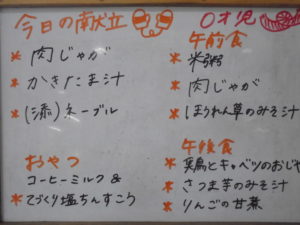 今日の献立
* 肉じゃが
* かきたま汁
* (添)ネーブル
おやつ
* コーヒーミルク &
てづくり塩ちんすこう
0才児
午前食
* 米粥
* 肉じゃが
* ほうれん草のみそ汁
午後食
* 美鳥とキャベツのおじや
* さつま芋のみそ汁
* りんごの甘煮